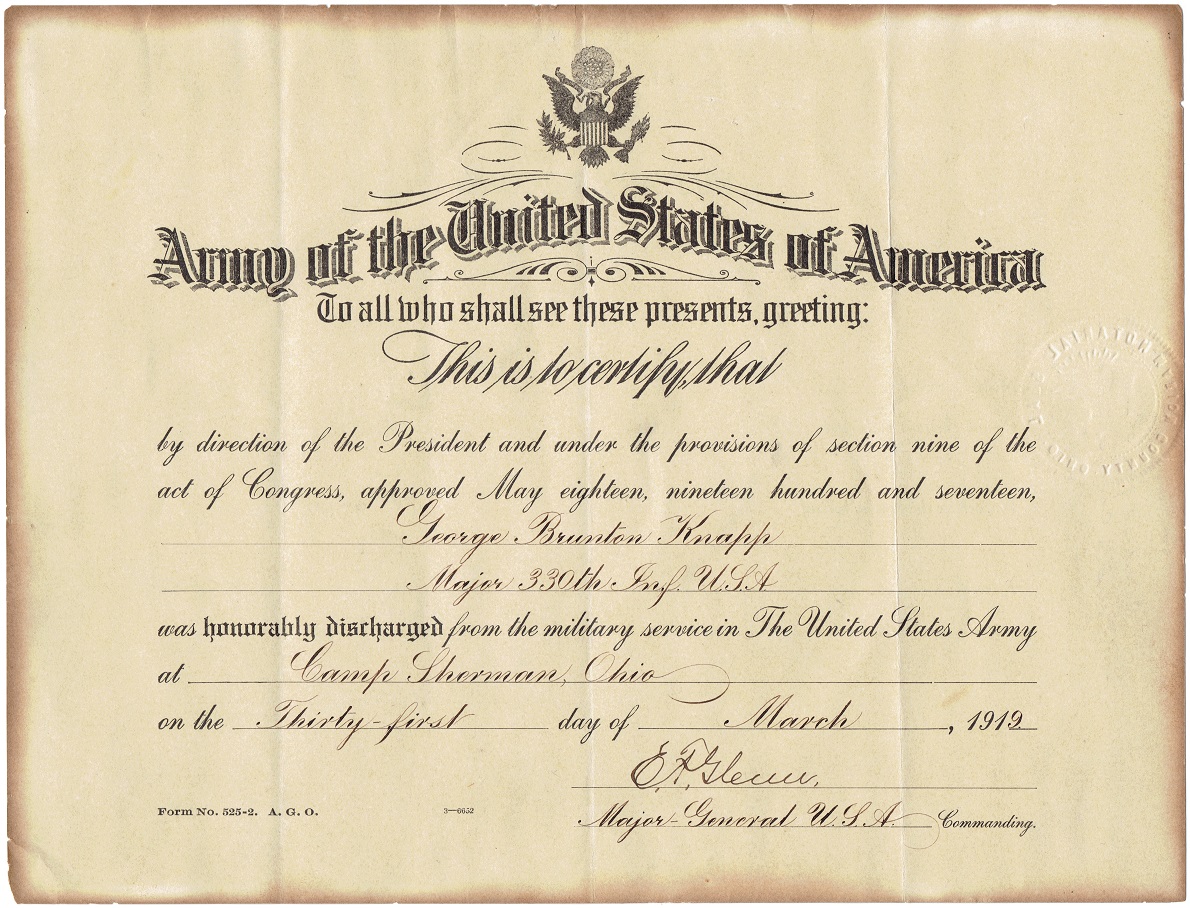 Army of the United States of America
To all who shall see these presents, greeting:
This is to certify, that
by direction of the President and under the provisions of section nine of the
act of Congress, approved May eighteen, nineteen hundred and seventeen,
George Brunton Knapp
Major 330th Inf. U.S.A
was honorably discharged from the military service in The United States Army
at Camp Sherman, Ohio
on the Thirty-first day of March, 1919
E.F. Glenn,
Form No. 525-2. A. G. O. 3—6652 Major-General U.S.A. Commanding.